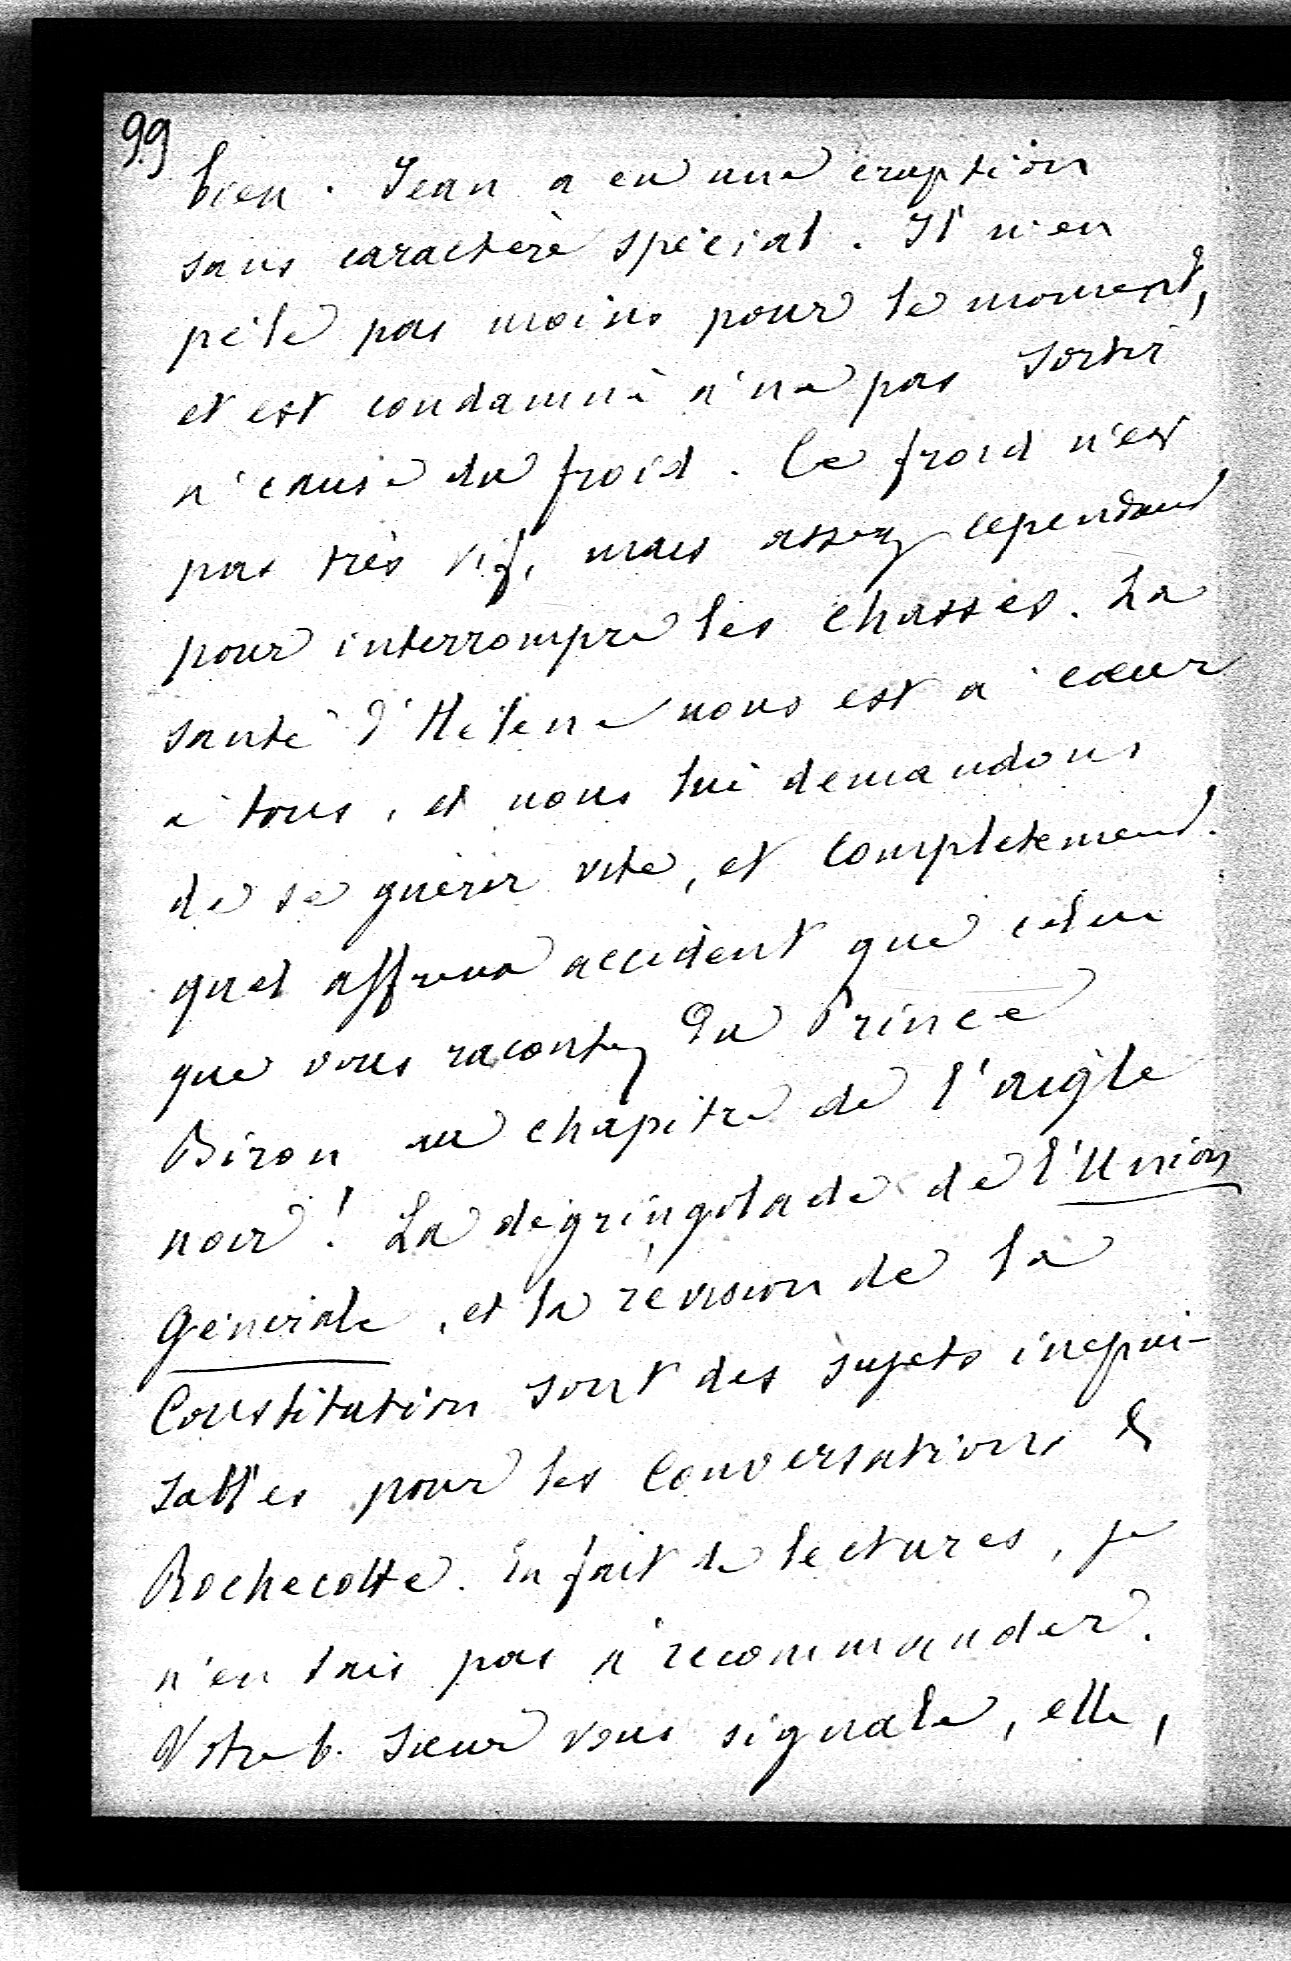 99
bien. Jean a eu une éruption
sans caractère spécial. Il n'en
pèle pas moins pour le moment,
et est condamné à ne pas sortir
à cause du froid. Ce froid n'est
pas très vif, mais assez cependant
pour interrompre les chasses. La
santé d'Hélène nous est à coeur
à tous, et nous lui demandons
de se guérir vite, et complètement.
quel affreux accident que celui
que vous racontez du Prince
Biron au chapitre de l'aigle
noir! La dégringolade de l'Union
Générale, et la révision de la
Constitution sont des sujets inépui-
sables pour les conversations de
Rochecotte. En fait de lectures, je
n'en sais pas à recommander.
Votre b. soeur vous signale, elle,